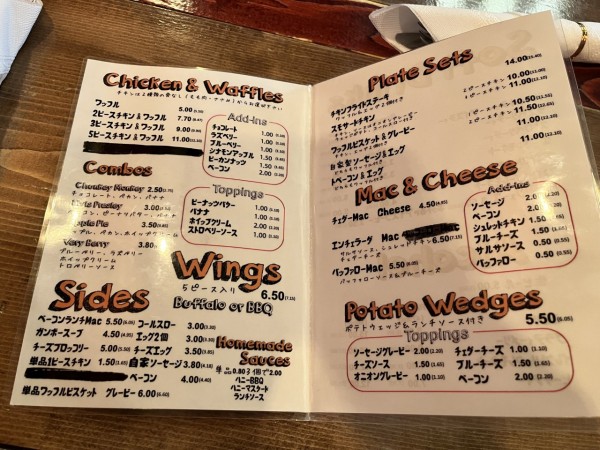 Chicken & Waffles
ワッフル 5.00
2ピースチキン & ワッフル 7.70 (8.47)
3ピースチキン & ワッフル 9.00
5ピースチキン & ワッフル 11.00
Add-ins
チョコレート 1.00
ラズベリー 1.00
ブルーベリー 1.00
シナモンアップル 1.50
ピーカンナッツ 1.00
ベーコン 2.00
Combos
Chunkey Monkey 2.50
チョコレート、ペカン、バナナ
Elvis Presley 3.00
Apple Pie 3.50
Very Berry 3.80
ブルーベリー、ラズベリー
ホイップクリーム
トロベリーソース
Toppings
ピーナッツバター 1.00
バナナ 1.00
ホイップクリーム 2.00
ストロベリーソース 1.00
Wings
5ピース入り 6.50 (7.15)
Buffalo or BBQ
Sides
ベーコンランチMac 5.50 (6.05)
ガンボースープ 4.50 (4.95)
チーズブロッコリー 5.00
単品1ピースチキン 1.50
ベーコン 4.00 (4.40)
単品ワッフルビスケット グレービー 6.00 (6.60)
コールスロー 3.00 (3.30)
エッグ2個 3.00 (3.30)
チーズエッグ 3.50
自家ソーセージ 3.80
Homemade Sauces
単品 0.80 3個で2.00
ハニーBBQ
ハニーマスタード
ランチソース
Plate Sets
チキンフライドステーキ 14.00 (15.40)
スモサートチキン
2ピースチキン 10.00 (11.00)
3ピースチキン 11.00 (12.10)
ワッフルビスケット&グレービー
1ピースチキン 10.50 (11.55)
2ピースチキン 11.50 (12.65)
自家製ソーセージ&エッグ 11.00 (12.10)
トベーコン & エッグ 11.00 (12.10)
Mac & Cheese
チェダーMac Cheese 4.50 (4.95)
エンチェラーダ Mac 6.50 (7.15)
チェダーチーズ
バッファロMac 5.50 (6.05)
バッファローソース&ブルーチーズ
Add-ins
ソーセージ 2.00 (2.20)
ベーコン 2.00 (2.20)
シュレットチキン 1.50 (1.65)
ブルーチーズ 1.50 (1.65)
サルサソース 0.50 (0.55)
バッファロー 0.50 (0.55)
Potato Wedges
ポテトウェッジ&ランチソース付き 5.50 (6.05)
Toppings
ソーセージグレービー 2.00 (2.20)
チーズソース 1.50 (1.65)
オニオングレービー 1.00 (1.10)
チェダーチーズ 1.00 (1.10)
ブルーチーズ 1.50 (1.65)
ベーコン 2.00 (2.20)